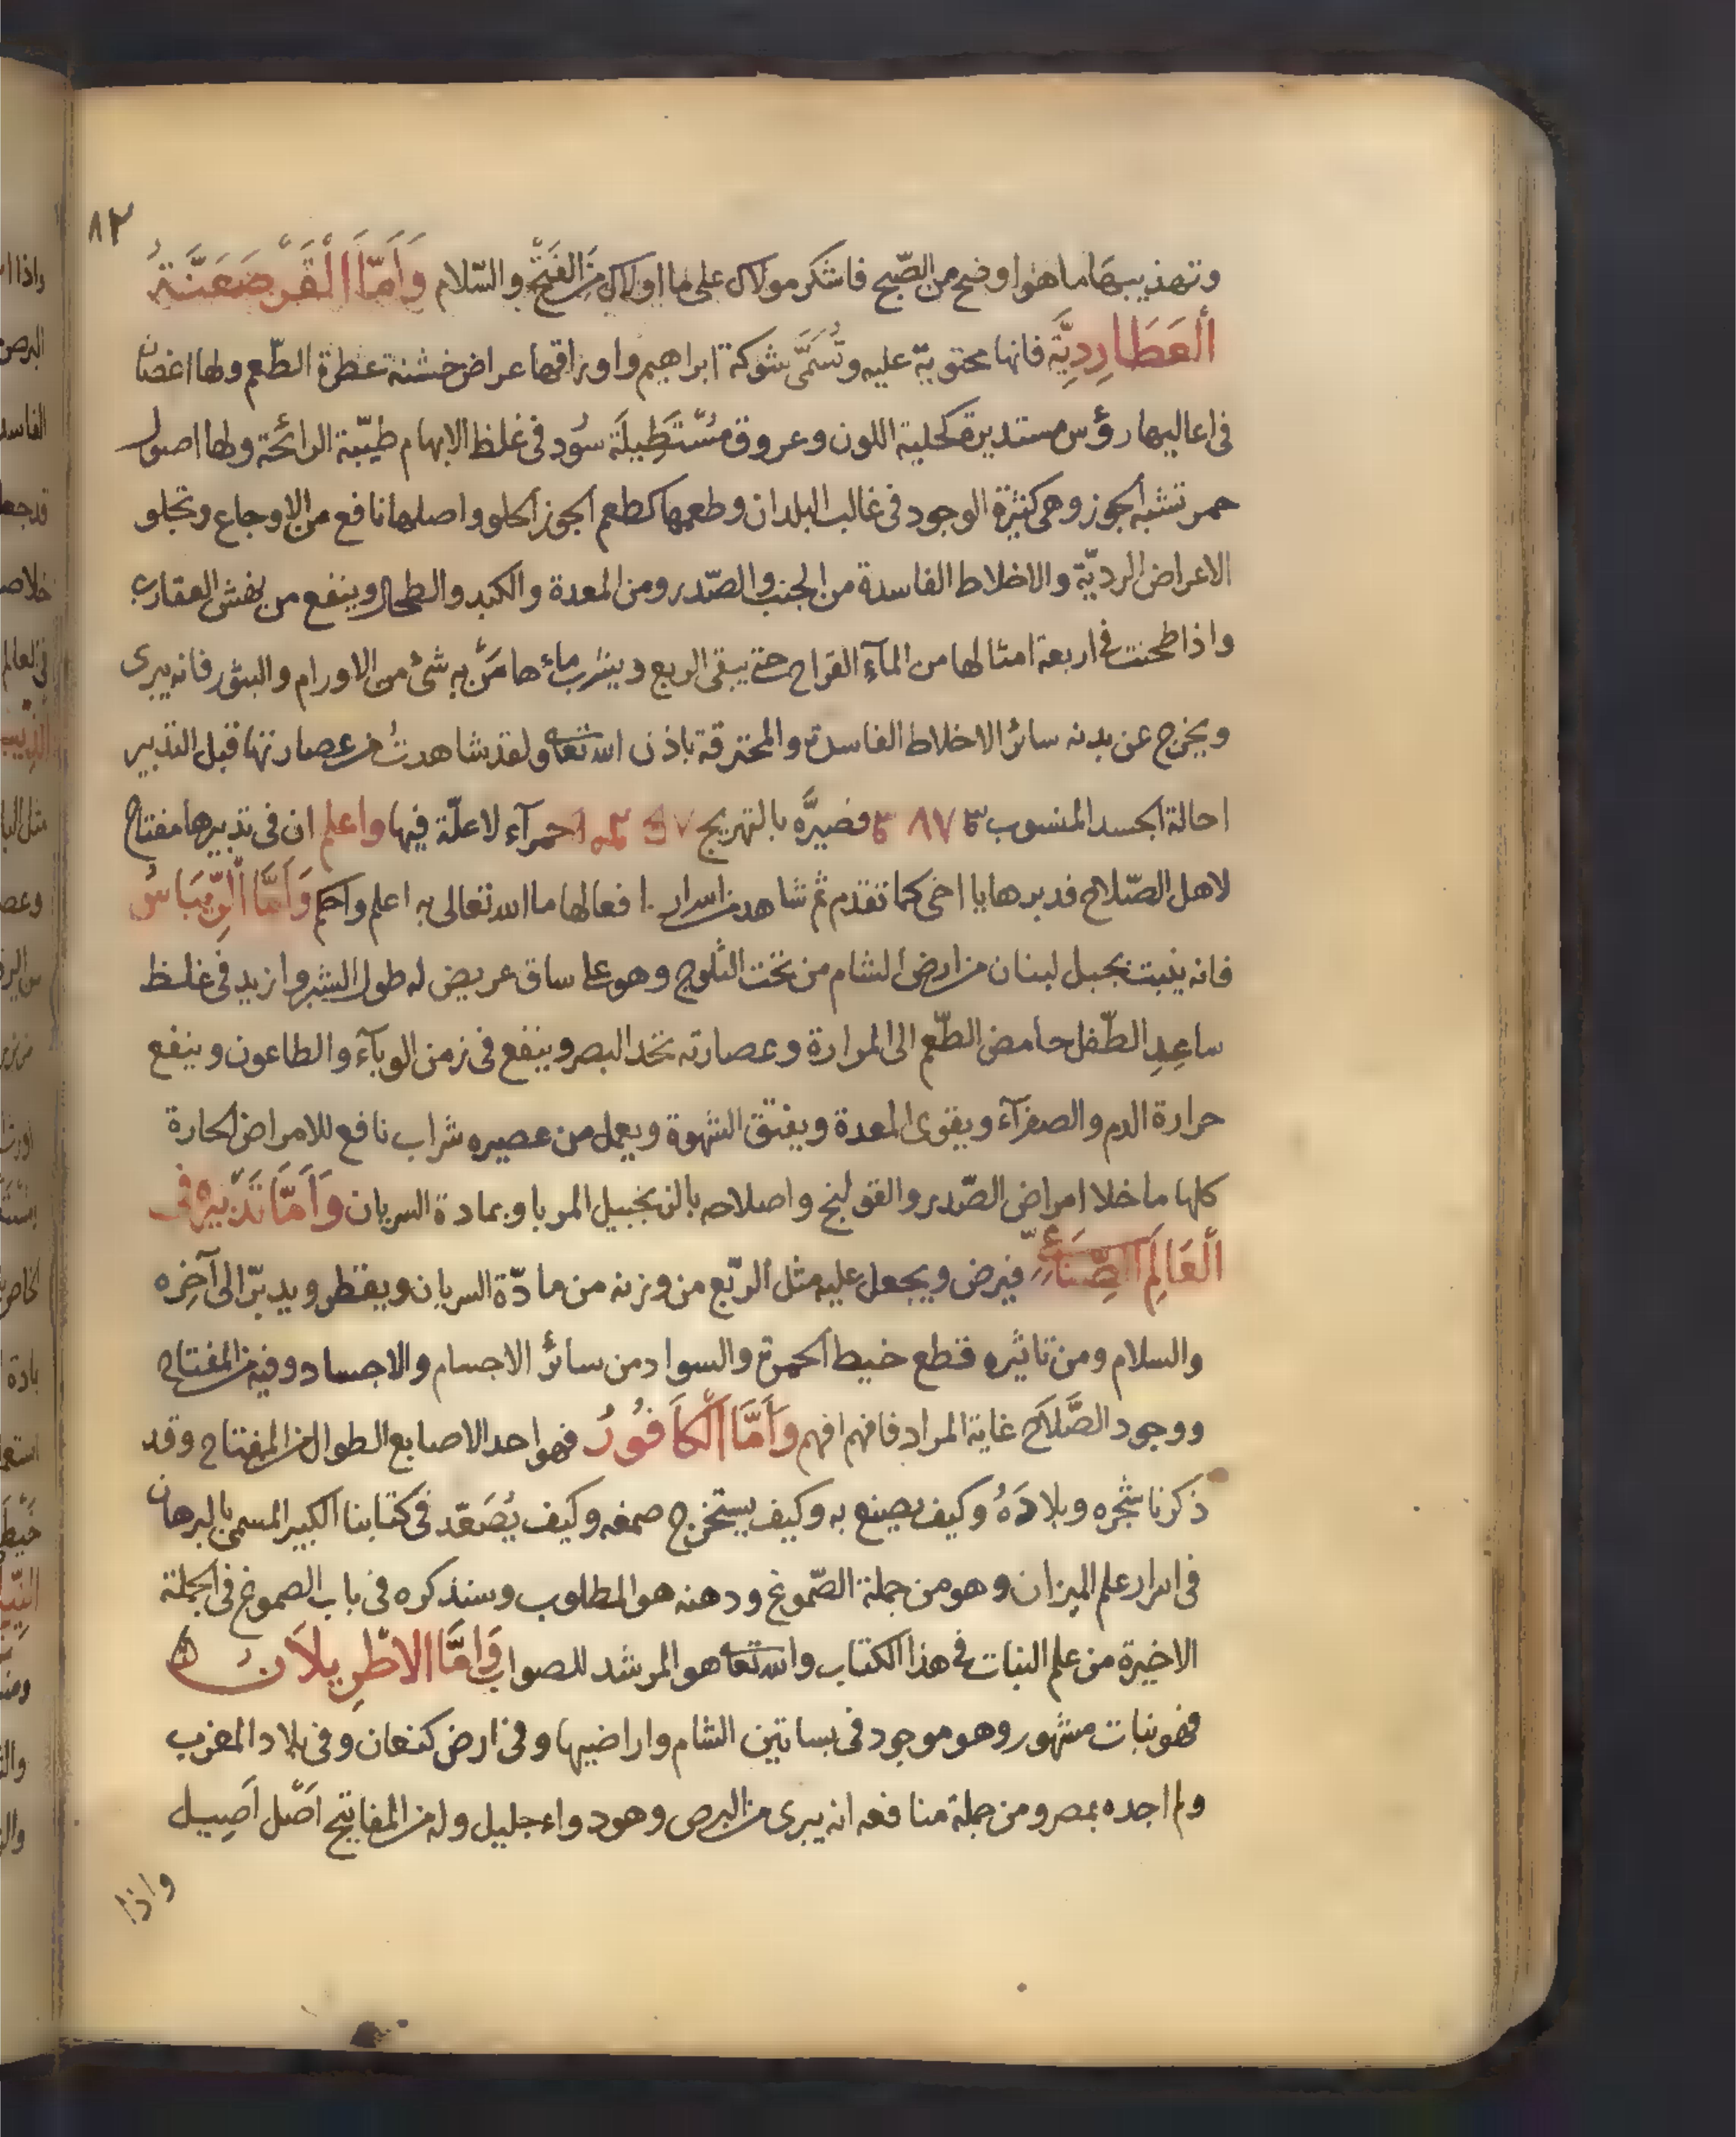 ٨٢
وتهذيبها ما هو اوضح من الصّبح فاشكر مولاك على ما اولاك من الفَتح والسّلام وَاَمّا الْقَرْصَعَنَّةُ
اَلعَطَارِدِيَّة فانها محتوية عليه وتُسَمَّى شوكة ابراهيم واوراقها عراض خشنة عطرة الطّعم ولها اغصان
فى اعاليها رؤس مستديرة كحلية اللون وعروق مُسْتَطِيلَة سُود فى غلظ الابهام طيّبة الرائحة ولها اصول
حمر تشبه الجوز وهى كثيرة الوجود فى غالب البلدان وطعمها كطعم الجوز الحلو واصلها نافع من الاوجاع وتجلو
الاعراض الرديّة والاخلاط الفاسدة من الجنب والصّدر ومن المعدة والكبد والطحال وينفع من نهش العقارب
واذا طحنت فى اربعة امثالها من المآء القراح حتى يبقى الربع ويشرب ماءها مَنْ به شئ من الاورام والبثور فانه يبرى
ويخرج عن بدنه سائر الاخلاط الفاسدة والمحترقة باذن الله تعا ولقد شاهدتُ من عصارتها قبل التدبير
احالة الجسد المنسوب فصيرَّه بالتهريج حمرآء لا علّة فيها واعلم ان فى تدبيرها مفتاح
لاهل الصّلاح فدبرها يا اخى كما تقدم ثم شاهد من اسرار افعالها ما الله تعالى به اعلم واحكم وَاَمَّا الرِّيبَاسُ
فانه ينبت بجبل لبنان من ارض الشام من تحت الثلوج وهو على ساق عريض له طول الشبر وازيد فى غلظ
ساعِدِ الطّفل حامض الطّعم الى المرارة وعصارته تحد البصر وينفع فى زمن الوبآء والطاعون وينفع
حرارة الدم والصفرآء ويقوى المعدة ويفتق الشهوة ويعمل من عصيره شراب نافع للامراض الحارة
كلها ما خلا امراض الصّدر والقولنج واصلاحه بالزنجبيل المربا وبمادة السريان وَاَمَّا تَدْبِيرُه فى
اَلْعَالَمِ الصِّنَاعِىِّ فيرض ويجعل عليه مثل الرّبع من وزنه من مادّة السريان ويقطر ويدبّر الى آخِره
والسلام ومن تاثيره قطع خيط الحمرة والسواد من سائر الاجسام والاجساد وفيه من المفتاح
ووجود الصَّلَاح غاية المراد فافهم افهم وَاَمَّا الْكَافُورُ فهو احد الاصابع الطوال من المفتاح وقد
ذكرنا شجره وبلادَهُ وكيف يصنع به وكيف يستخرج صمغه وكيف يُصَعّد فى كتابنا الكبير المسمى بالبرهان
فى اسرار علم الميزان وهو من جملة الصّموغ ودهنه هو المطلوب وسنذكره فى باب الصموغ فى الجملة
الاخيرة من علم النبات فى هذا الكتاب والله تعا هو المرشد للصواب وَامَّا الاطْرِيلَانُ
فهو نبات مشهور وهو موجود فى بساتين الشام واراضيها وفى ارض كنعان وفى بلاد المغرب
ولم اجده بمصر ومن جملة منافعه انه يبرى من البرص وهو دواء جليل وله من المفاتيح اَصْل اَصِيل
واذا